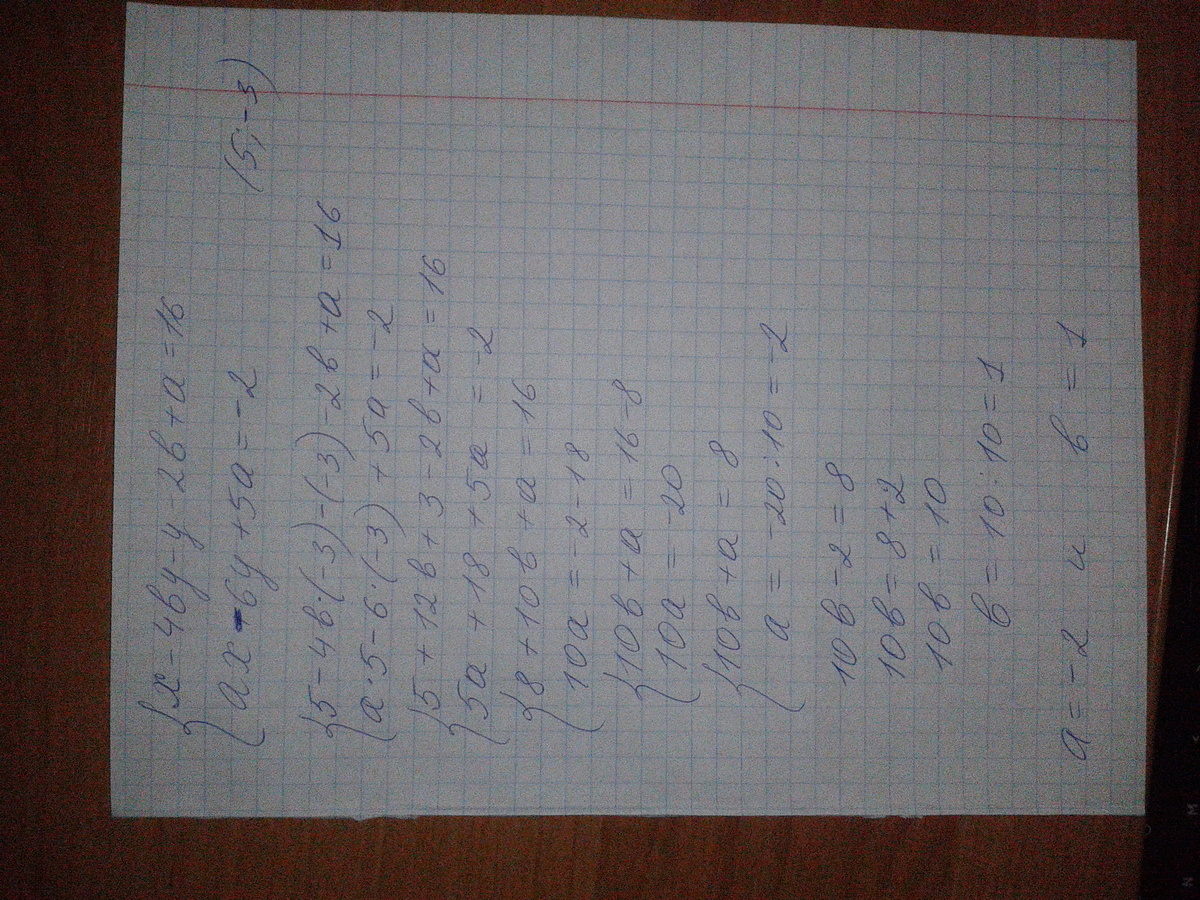 x-4вy-y-2в+a=16
ax-6y+5a=-2 (5;-3)
5-4в·(-3)-(-3)-2в+a=16
a·5-6·(-3)+5a=-2
5+12в+3-2в+a=16
5a+18+5a=-2
8+10в+a=16
10a=-2-18
10в+a=16-8
10a=-20
10в+a=8
a=-20:10=-2
10в-2=8
10в=8+2
10в=10
в=10:10=1
a=-2 и в=1